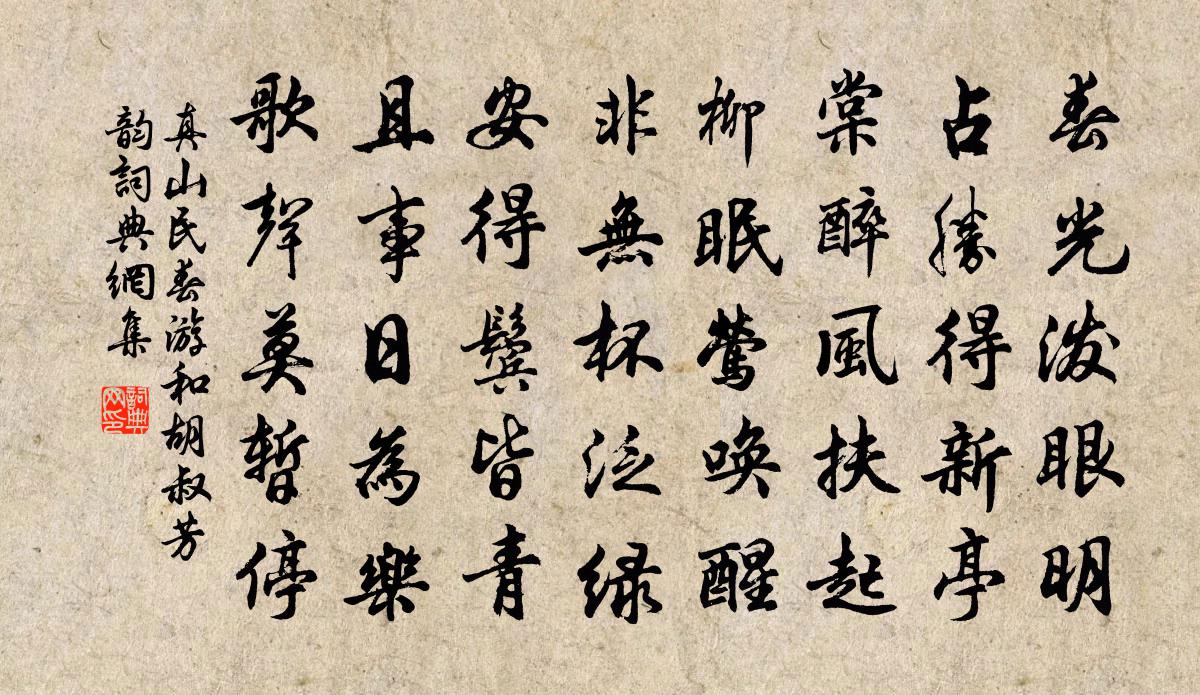 春光潑眼明
占勝得新亭
棠醉風扶起
柳眠鶯喚醒
非無杯泛绿
安得鬓皆青
且事日為樂
歌聲莫暫停
真山民春游和胡叔芳
韵詞典網集
詞典网印